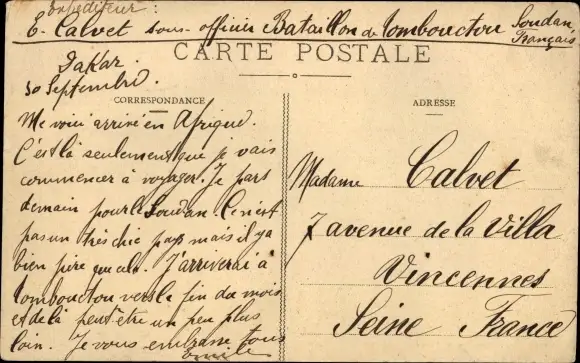 Expéditeur :
E. Calvet sous-officier Bataillon de Tombouctou Soudan
Français
CARTE POSTALE
Dakar.
30 Septembre.
CORRESPONDANCE
ADRESSE
Me voici arrivé en Afrique.
C'est là seulement que je vais
commencer à voyager. Je pars
demain pour le Soudan. Ce n'est
pas un très chic pays mais il y a
bien pire que cela. J'arriverai à
Tombouctou vers le fin du mois
et de là peut-être un peu plus
loin. Je vous embrasse tous
Emile
Madame Calvet
7 avenue de la Villa
Vincennes
Seine France